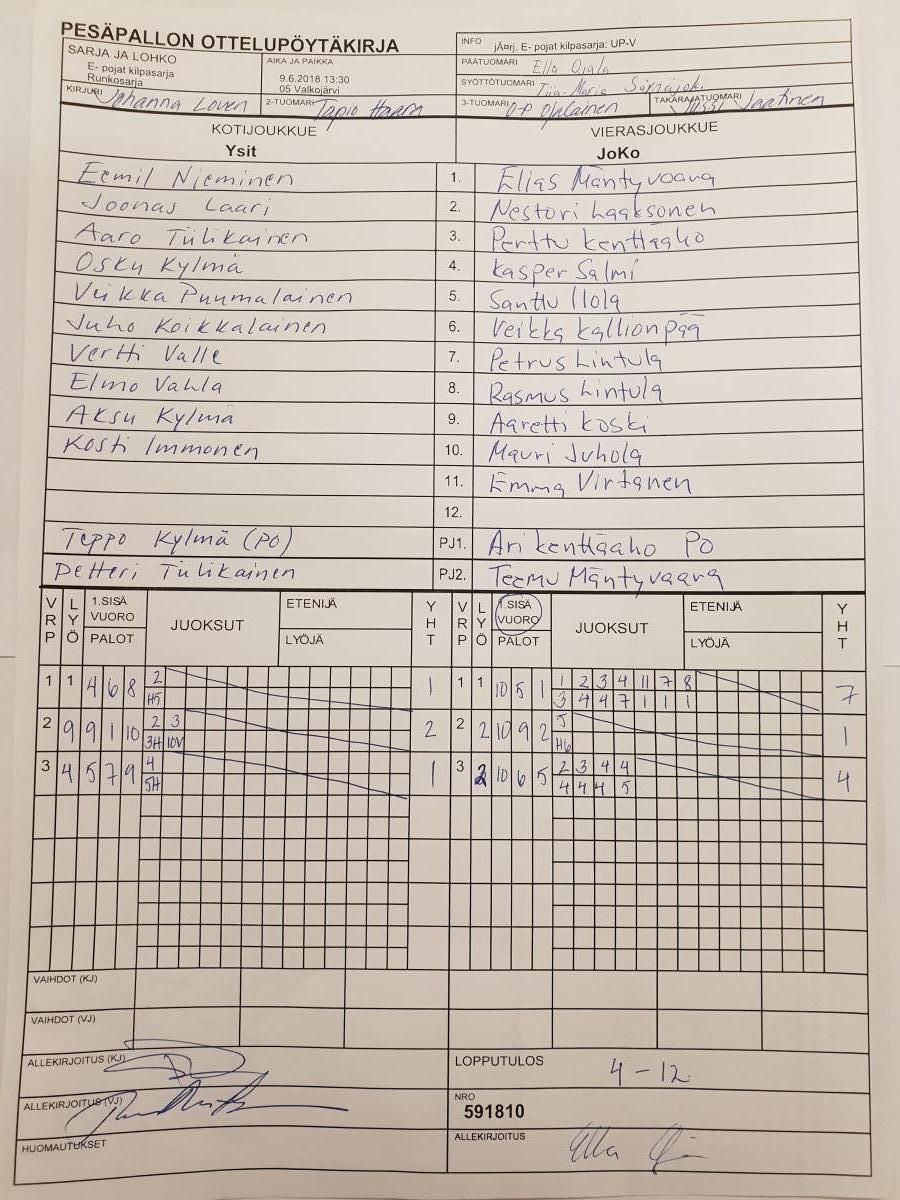 PESÄPALLON OTTELUPÖYTÄKIRJA
INFO jÃ¤rj. E- pojat kilpasarja: UP-V
SARJA JA LOHKO
E- pojat kilpasarja
Runkosarja
AIKA JA PAIKKA
9.6.2018 13:30
05 Valkojärvi
PÄÄTUOMARI Ella Ojala
SYÖTTÖTUOMARI Tiia-Maria
KIRJURI Johanna Loven
2-TUOMARI Tapio Haara
3-TUOMARI O-P Ojalainen
TAKARAJATUOMARI Jussi Jaatinen
KOTIJOUKKUE VIERASJOUKKUE
Ysit JoKo
Eemil Nieminen 1. Elias Mäntyvaara
Joonas Laari 2. Nestori Laaksonen
Aaro Tulikainen 3. Perttu Kenttäaho
Osku Kylmä 4. Kasper Salmi
Veikka Puumalainen 5. Santtu Ilola
Juho Koikkalainen 6. Veikka Kallionpää
Vertti Valle 7. Petrus Lintula
Elmo Vahla 8. Rasmus Lintula
Aksu Kylmä 9. Aaretti Koski
Kosti Immonen 10. Mauri Juhola
11. Emma Virtanen
12.
Teppo Kylmä (PO) PJ1. Ari Kenttäaho PO
Petteri Tulikainen PJ2. Teemu Mäntyvaara
VRP LYÖ 1.SISÄ VUORO PALOT JUOKSUT ETENIJÄ LYÖJÄ YHT VRP LYÖ 1.SISÄ VUORO PALOT JUOKSUT ETENIJÄ LYÖJÄ YHT
1 1 4 6 8 2 1 1 1 10 5 1 1 2 3 4 11 7 8 7
H5 3 4 4 7 1 1 1
2 9 9 1 10 2 3 2 2 2 10 9 2 5 1
3H 10V H6
3 4 5 7 9 4 1 3 2 10 6 5 2 3 4 4 4
5H 4 4 4 5
VAIHDOT (KJ)
VAIHDOT (VJ)
ALLEKIRJOITUS (KJ)
LOPPUTULOS 4 - 12
ALLEKIRJOITUS (VJ)
NRO
591810
HUOMAUTUKSET
ALLEKIRJOITUS Ella